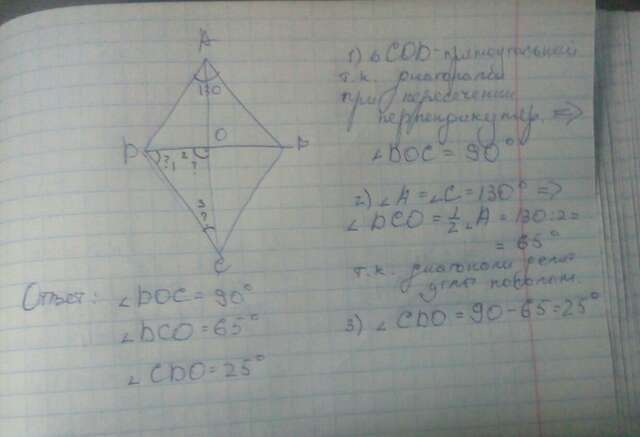 A
130
O
D
B
?
1
2
?
3
?
C
1) △COD - прямоугольный
т.к. диагонали
при пересечении
перпендикуляр. =>
∠DOC = 90°
2) ∠A = ∠C = 130° =>
∠DCO = 1/2 ∠A = 130:2 =
= 65°
т.к. диагонали делят
углы пополам.
3) ∠CDO = 90 - 65 = 25°
Ответ: ∠DOC = 90°
∠DCO = 65°
∠CDO = 25°